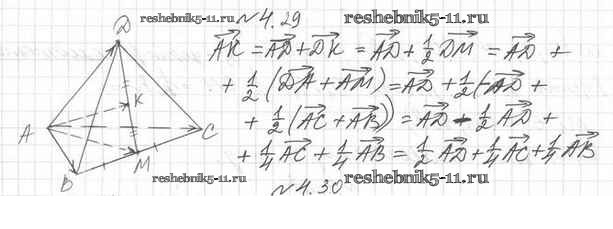 reshebnik5-11.ru №4.29 reshebnik5-11.ru
D
AK = AD + DK = AD + 1/2 DM = AD +
+ 1/2 (DA + AM) = AD + 1/2 (-AD +
K
+ 1/2 (AC + AB)) = AD - 1/2 AD +
A C
+ 1/4 AC + 1/4 AB = 1/2 AD + 1/4 AC + 1/4 AB
M
B
reshebnik5-11.ru reshebnik5-11.ru
№4.30